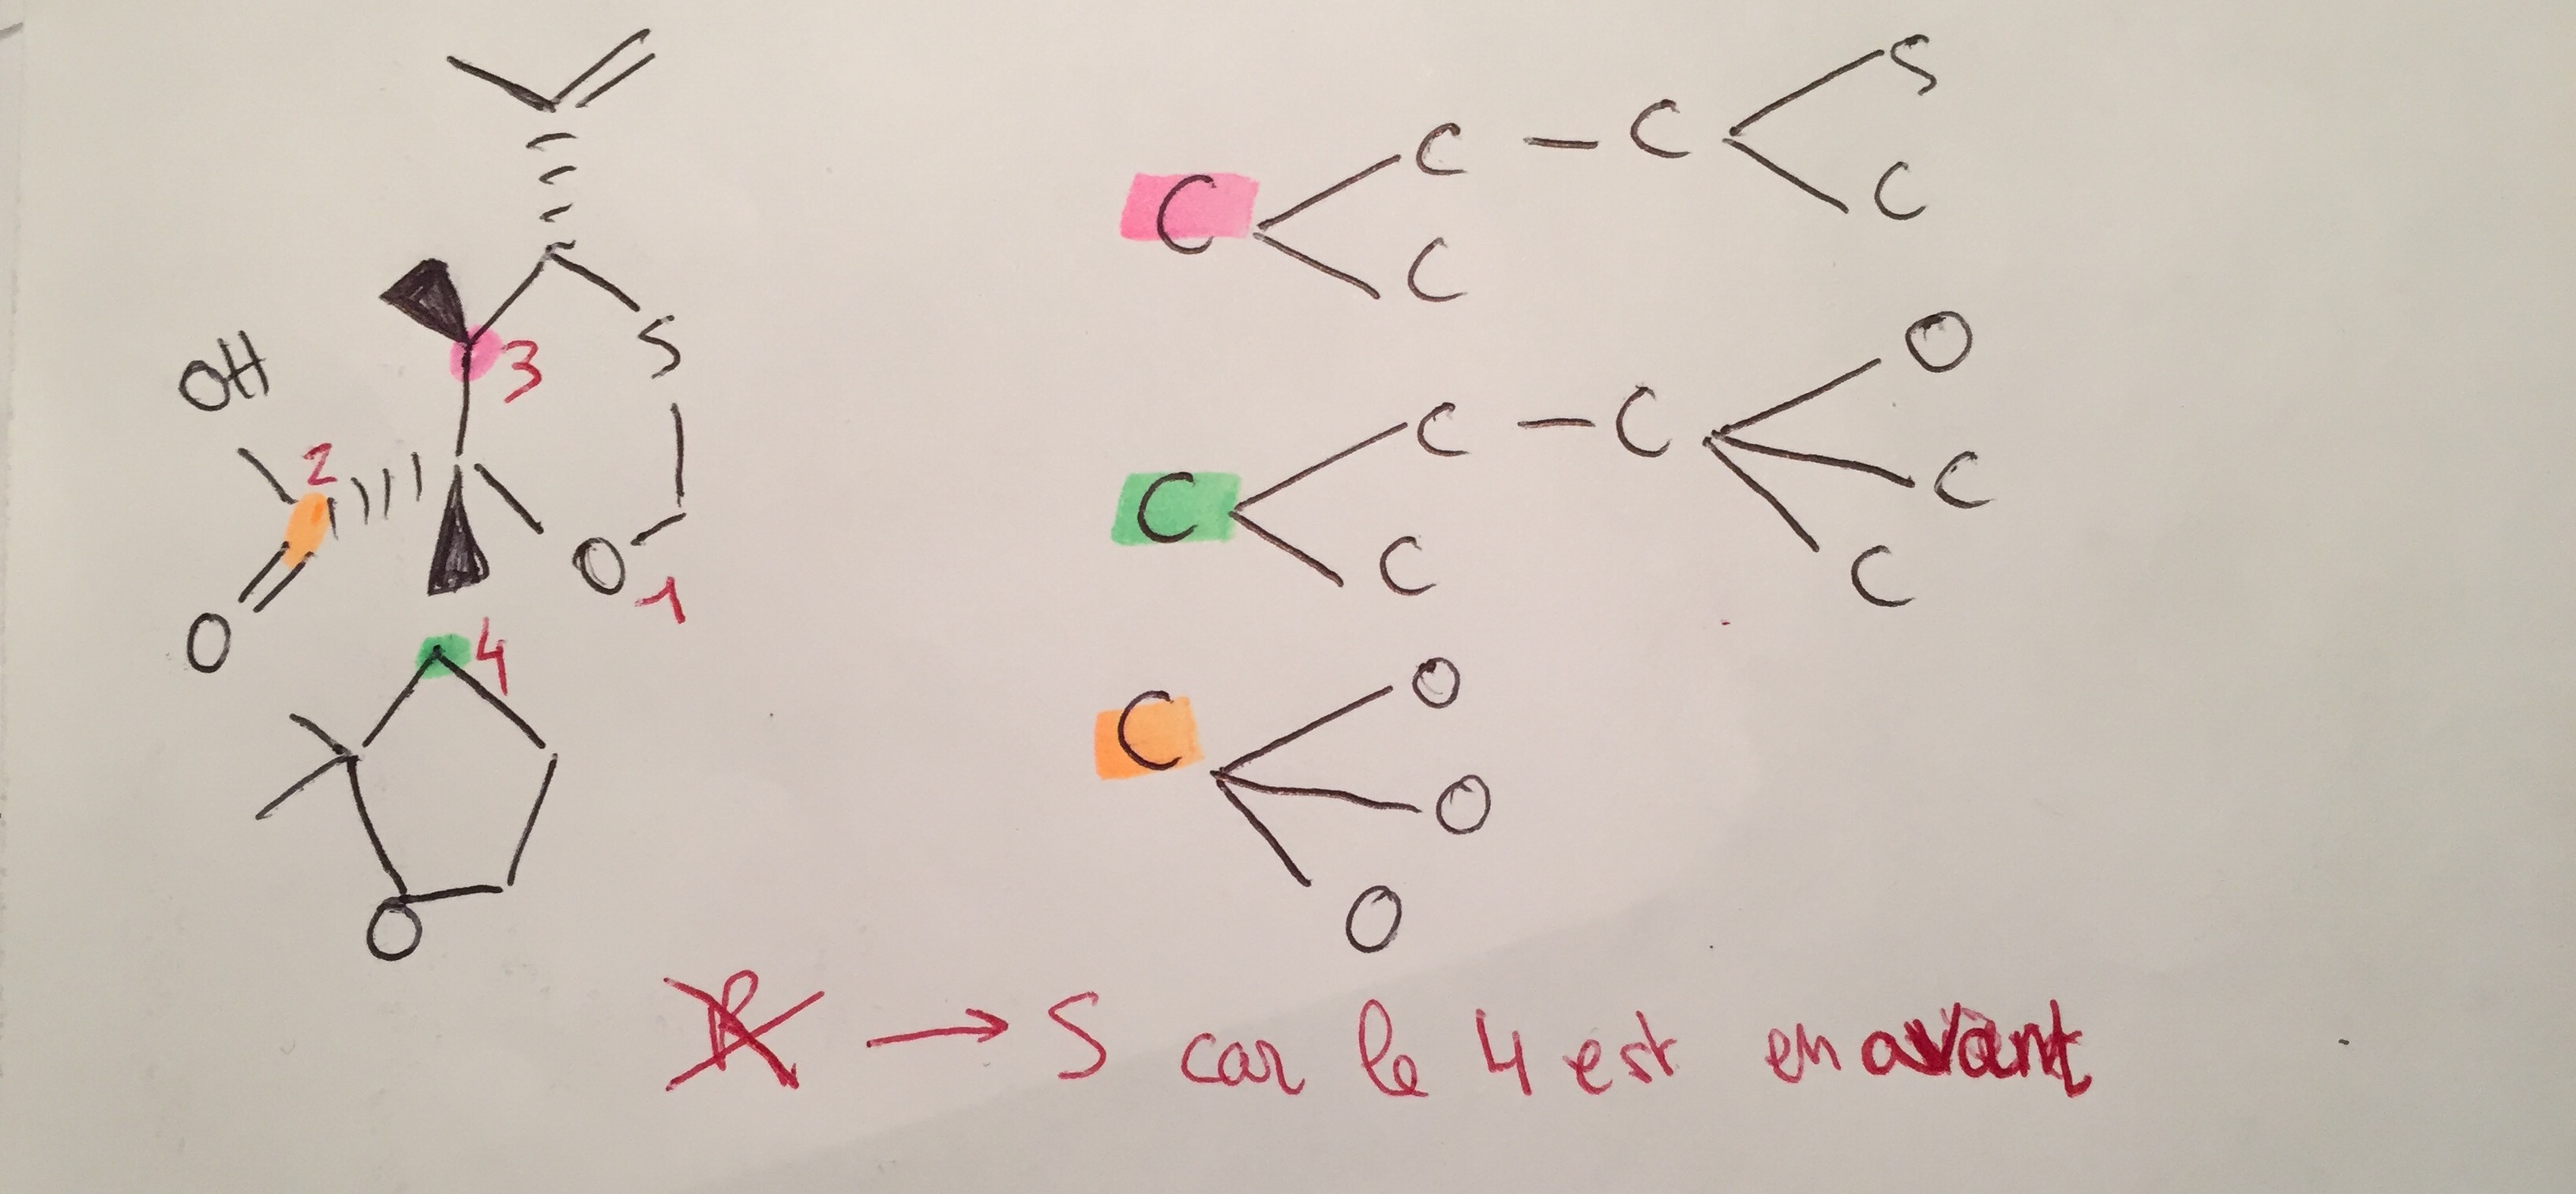 S
C — C
C
C
S
3
OH
O
C — C
C
2
C
C
C
O 1
O
4
O
C
O
O
O
R → S car le 4 est en avant